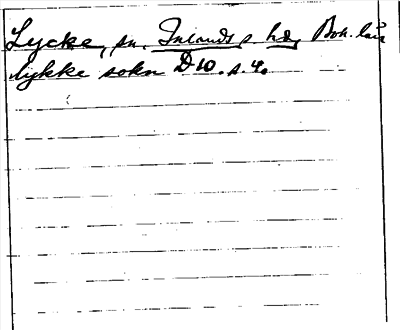 Lycke, sn. Inlands s. hd, Boh. län
lykke sokn D 10. s. 4.